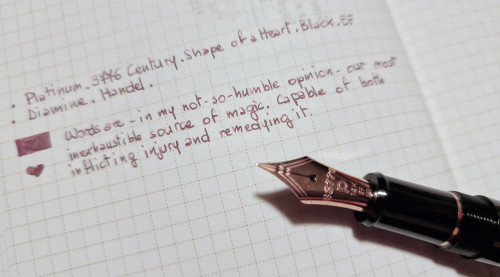 Platinum. 3776 Century. Shape of a Heart. Black. EF
Diamine. Handel.
Words are - in my not-so-humble opinion - our most
inexhaustible source of magic. Capable of both
inflicting injury and remedying it.